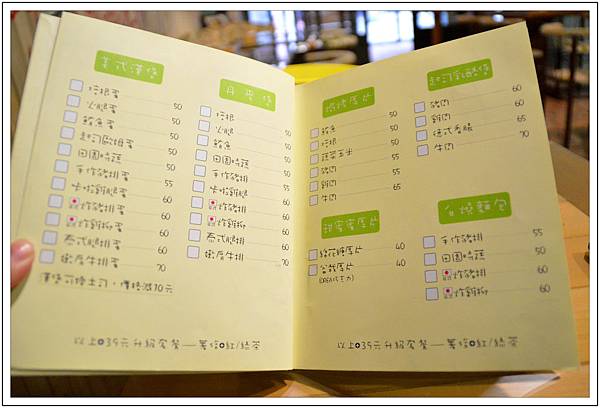 美式漢堡
培根蛋 50
火腿蛋 50
鮪魚蛋 50
起司歐姆蛋 50
田園時蔬 50
手作豬排蛋 55
卡啦雞腿蛋 55
炸豬排蛋 60
炸雞柳蛋 60
泰式腿排蛋 60
嫩厚牛排蛋 70
漢堡可換土司，價格減10元
丹麥堡
培根 50
火腿 50
鮪魚 50
田園時蔬 50
手作豬排 55
卡啦雞腿 55
炸豬排 60
炸雞柳 60
泰式腿排 60
嫩厚牛排 70
以上+35元升級套餐—薯條+紅/綠茶
焗烤厚片
鮪魚 50
培根 50
蔬菜玉米 50
豬肉 55
雞肉 55
牛肉 65
甜蜜蜜厚片
棉花糖厚片 40
公教厚片 40
起司乳酪堡
豬肉 60
雞肉 60
德式香腸 60
牛肉 70
白燒麵包
手作豬排 55
田園時蔬 50
炸豬排 60
炸雞柳 60
以上+35元升級套餐—薯條+紅/綠茶